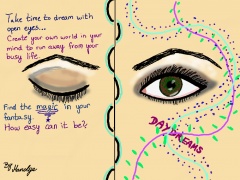 Take time to dream with
open eyes...
Create your own world in your
mind to run away from your
busy life.
Find the magic in your
fantasy.
How easy can it be?
DAYDREAMS
By Hanelya